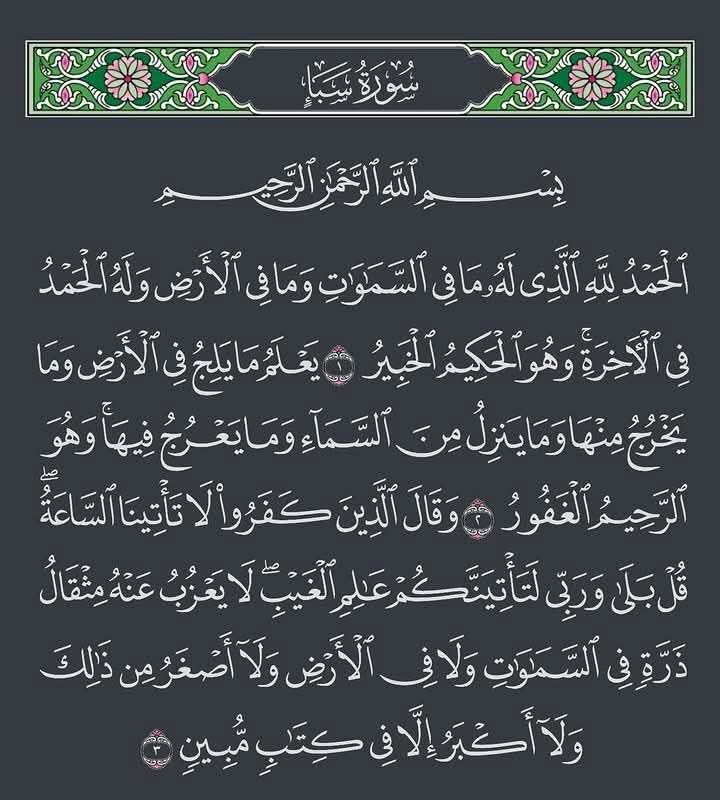 سُورَةُ سَبَإٍ
بِسْمِ ٱللَّهِ ٱلرَّحْمَٰنِ ٱلرَّحِيمِ
ٱلْحَمْدُ لِلَّهِ ٱلَّذِى لَهُۥ مَا فِى ٱلسَّمَٰوَٰتِ وَمَا فِى ٱلْأَرْضِ وَلَهُ ٱلْحَمْدُ
فِى ٱلْأَخِرَةِۚ وَهُوَ ٱلْحَكِيمُ ٱلْخَبِيرُ ١ يَعْلَمُ مَا يَلِجُ فِى ٱلْأَرْضِ وَمَا
يَخْرُجُ مِنْهَا وَمَا يَنزِلُ مِنَ ٱلسَّمَآءِ وَمَا يَعْرُجُ فِيهَاۚ وَهُوَ
ٱلرَّحِيمُ ٱلْغَفُورُ ٢ وَقَالَ ٱلَّذِينَ كَفَرُوا۟ لَا تَأْتِينَا ٱلسَّاعَةُۖ
قُلْ بَلَىٰ وَرَبِّى لَتَأْتِيَنَّكُمْ عَٰلِمِ ٱلْغَيْبِۖ لَا يَعْزُبُ عَنْهُ مِثْقَالُ
ذَرَّةٍ فِى ٱلسَّمَٰوَٰتِ وَلَا فِى ٱلْأَرْضِ وَلَآ أَصْغَرُ مِن ذَٰلِكَ
وَلَآ أَكْبَرُ إِلَّا فِى كِتَٰبٍ مُّبِينٍ ٣